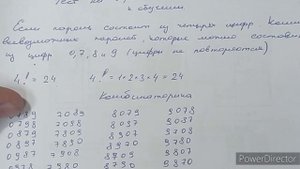 Тест по
к обучен
Если пароль состоит из четырёх цифр. Коли
возможных паролей, которые можно составить
из цифр 0,7,8 и 9 (цифры не повторяются)
4! = 24 4! = 1·2·3·4 = 24
Комбинаторика
0789 7089 8079 9078
0798 7098 8097 9087
0879 7809 8907 9708
0897 7890 8970 9780
0987 7908 8709 9807
0978 7980 8790 9870
PowerDirector